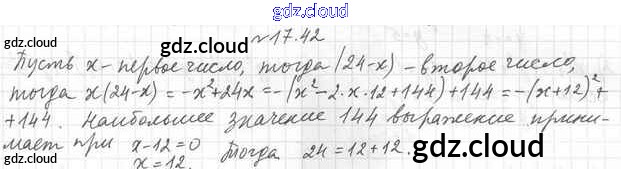 gdz.cloud
gdz.cloud №17.42 gdz.cloud
Пусть x - первое число, тогда (24-x) - второе число,
тогда x(24-x) = -x²+24x = -(x²-2·x·12+144)+144 = -(x+12)²+
+144. Наибольшее значение 144 выражение прини-
мает при x-12=0
x=12. Тогда 24=12+12.
gdz.cloud gdz.cloud